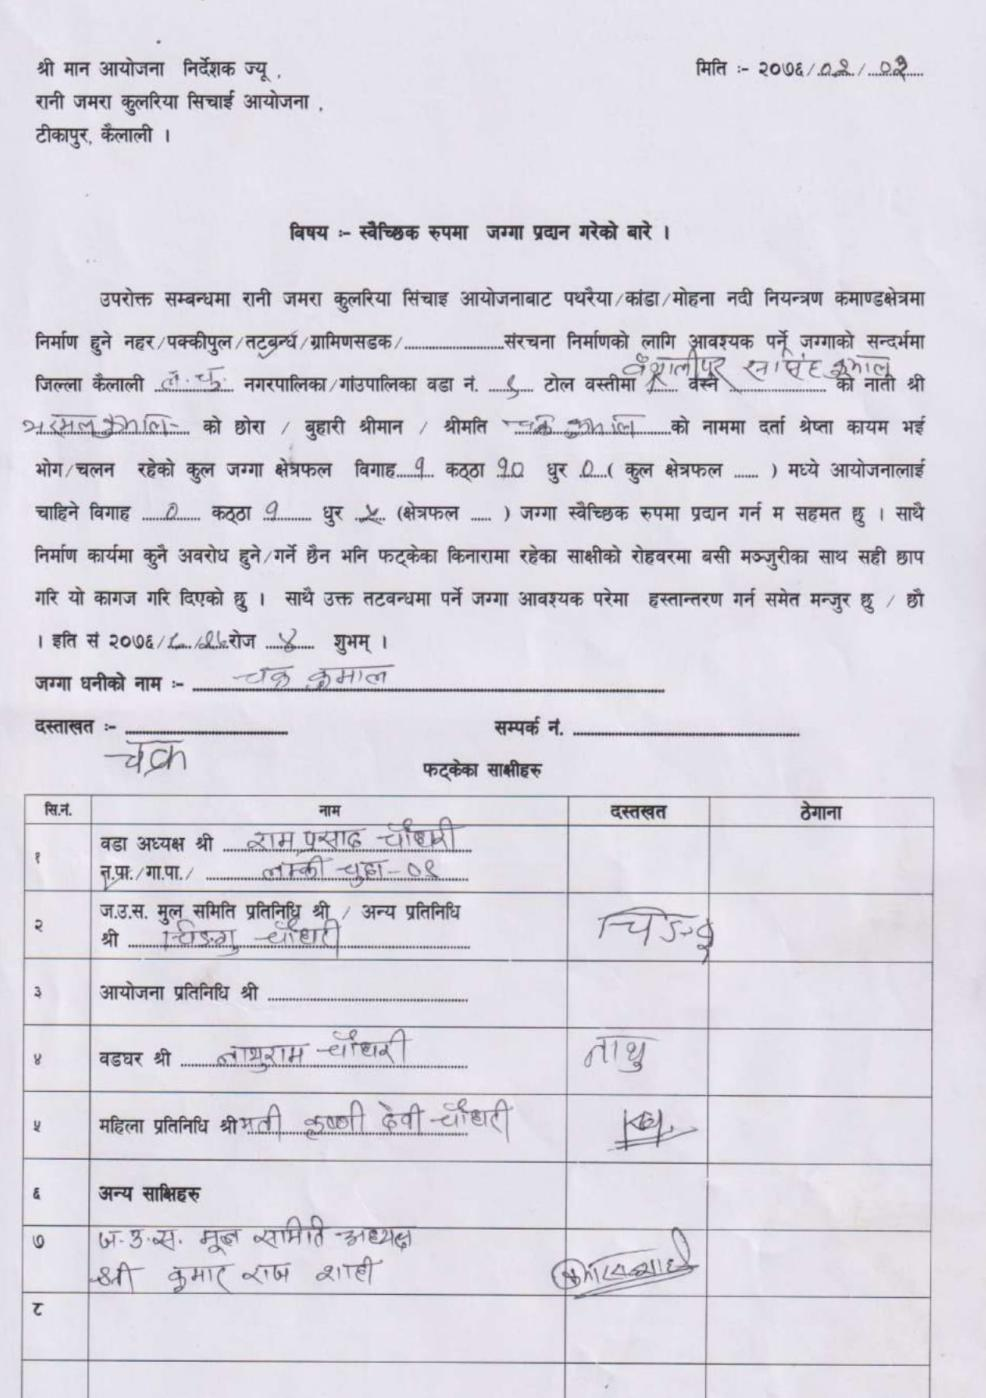 श्री मान आयोजना निर्देशक ज्यू ,
मिति :- २०७६/०२/०२
रानी जमरा कुलरिया सिचाई आयोजना ,
टीकापुर, कैलाली ।
विषय :- स्वैच्छिक रुपमा जग्गा प्रदान गरेको बारे ।
उपरोक्त सम्बन्धमा रानी जमरा कुलरिया सिंचाइ आयोजनाबाट पथरैया/कांडा/मोहना नदी नियन्त्रण कमाण्डक्षेत्रमा
निर्माण हुने नहर/पक्कीपुल/तटबन्ध/ग्रामिणसडक/....................संरचना निर्माणको लागि आवश्यक पर्ने जग्गाको सन्दर्भमा
जिल्ला कैलाली ल.चु. नगरपालिका/गांउपालिका वडा नं. १ टोल वस्तीमा वस्ने कुमाल को नाती श्री
को छोरा / बुहारी श्रीमान / श्रीमति चक्र कुमाल को नाममा दर्ता श्रेष्ता कायम भई
भोग/चलन रहेको कुल जग्गा क्षेत्रफल विगाह १ कठ्ठा १० धुर ० ( कुल क्षेत्रफल ...... ) मध्ये आयोजनालाई
चाहिने विगाह ० कठ्ठा १ धुर (क्षेत्रफल ..... ) जग्गा स्वैच्छिक रुपमा प्रदान गर्न म सहमत छु । साथै
निर्माण कार्यमा कुनै अवरोध हुने/गर्ने छैन भनि फट्केका किनारामा रहेका साक्षीको रोहवरमा बसी मञ्जुरीका साथ सही छाप
गरि यो कागज गरि दिएको छु । साथै उक्त तटबन्धमा पर्ने जग्गा आवश्यक परेमा हस्तान्तरण गर्न समेत मन्जुर छु / छौ
। इति सं २०७६/ रोज ४ शुभम् ।
जग्गा धनीको नाम :- चक्र कुमाल
दस्ताखत :- ....................
सम्पर्क नं. ....................
चक्र
फट्केका साक्षीहरु
सि.नं. नाम दस्तखत ठेगाना
१ वडा अध्यक्ष श्री राम प्रसाद चौधरी
न.पा./गा.पा./ लम्की चुहा-०१
२ ज.उ.स. मुल समिति प्रतिनिधि श्री / अन्य प्रतिनिधि
श्री चिङगु चौधरी चिङगु
३ आयोजना प्रतिनिधि श्री ....................
४ वडघर श्री नाथुराम चौधरी नाथु
५ महिला प्रतिनिधि श्रीमती कृष्णी देवी चौधरी
६ अन्य साक्षिहरु
७ ज.उ.स. मूल समिति अध्यक्ष
श्री कुमार राज शाही
८